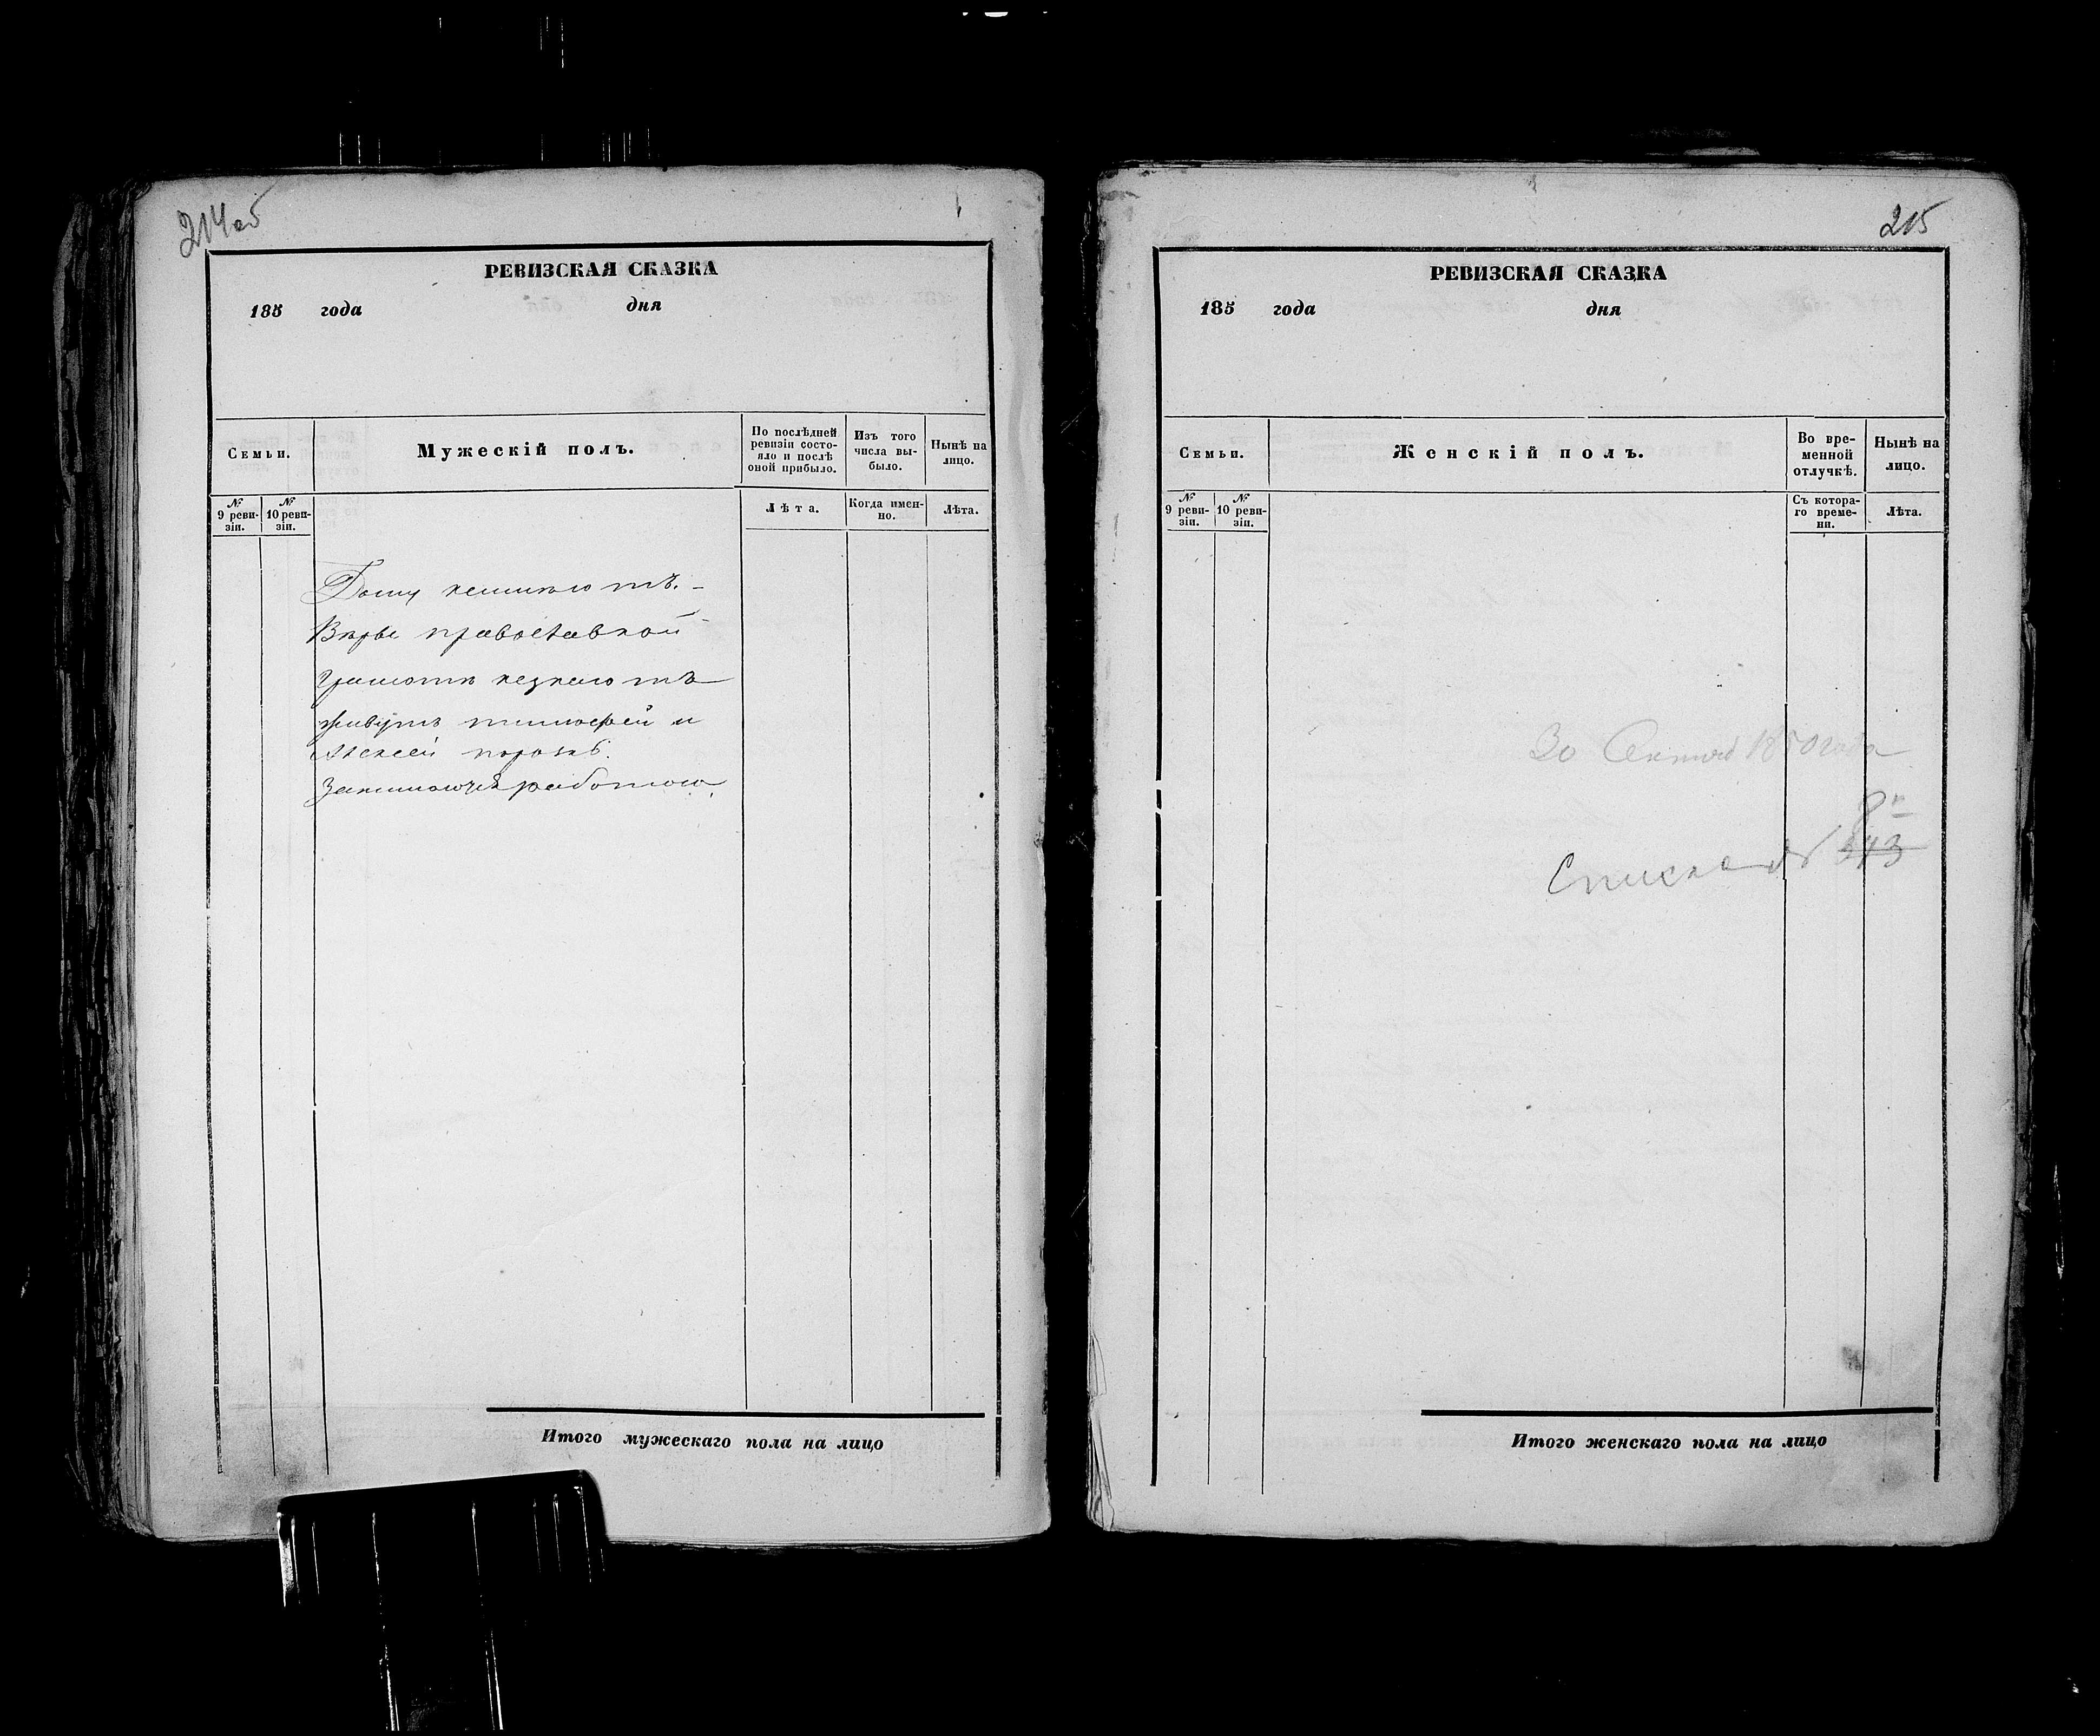 214об
РЕВИЗСКАЯ СКАЗКА
185 года дня
Семьи.
Мужескій полъ.
По послѣдней ревизіи состояло и послѣ оной прибыло.
Изъ того числа выбыло.
Нынѣ на лицо.
№ 9 ревизіи.
№ 10 ревизіи.
Лѣта.
Когда именно.
Лѣта.
Дому неимѣютъ.
Вѣры православной
грамотѣ незнаютъ
живутъ тимофей и
Алексей порознь.
Занимаются работою.
Итого мужескаго пола на лицо
215
РЕВИЗСКАЯ СКАЗКА
185 года дня
Семьи.
Женскій полъ.
Во временной отлучкѣ.
Нынѣ на лицо.
№ 9 ревизіи.
№ 10 ревизіи.
Съ котораго времени.
Лѣта.
30 1850 года
8
Списка № 343
Итого женскаго пола на лицо